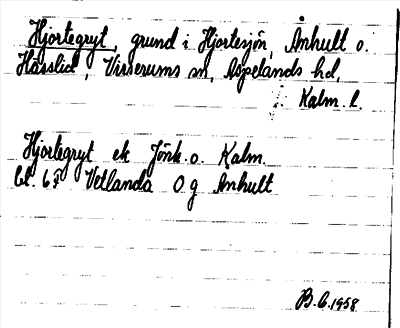 Hjortegryt, grund i Hjortesjön, Änhult o.
Härslid, Virserums sn, Aspelands hd,
Kalm. l.
Hjortegryt ek Jönk. o. Kalm.
bl. 63 Vetlanda Og Änhult
B.G. 1958